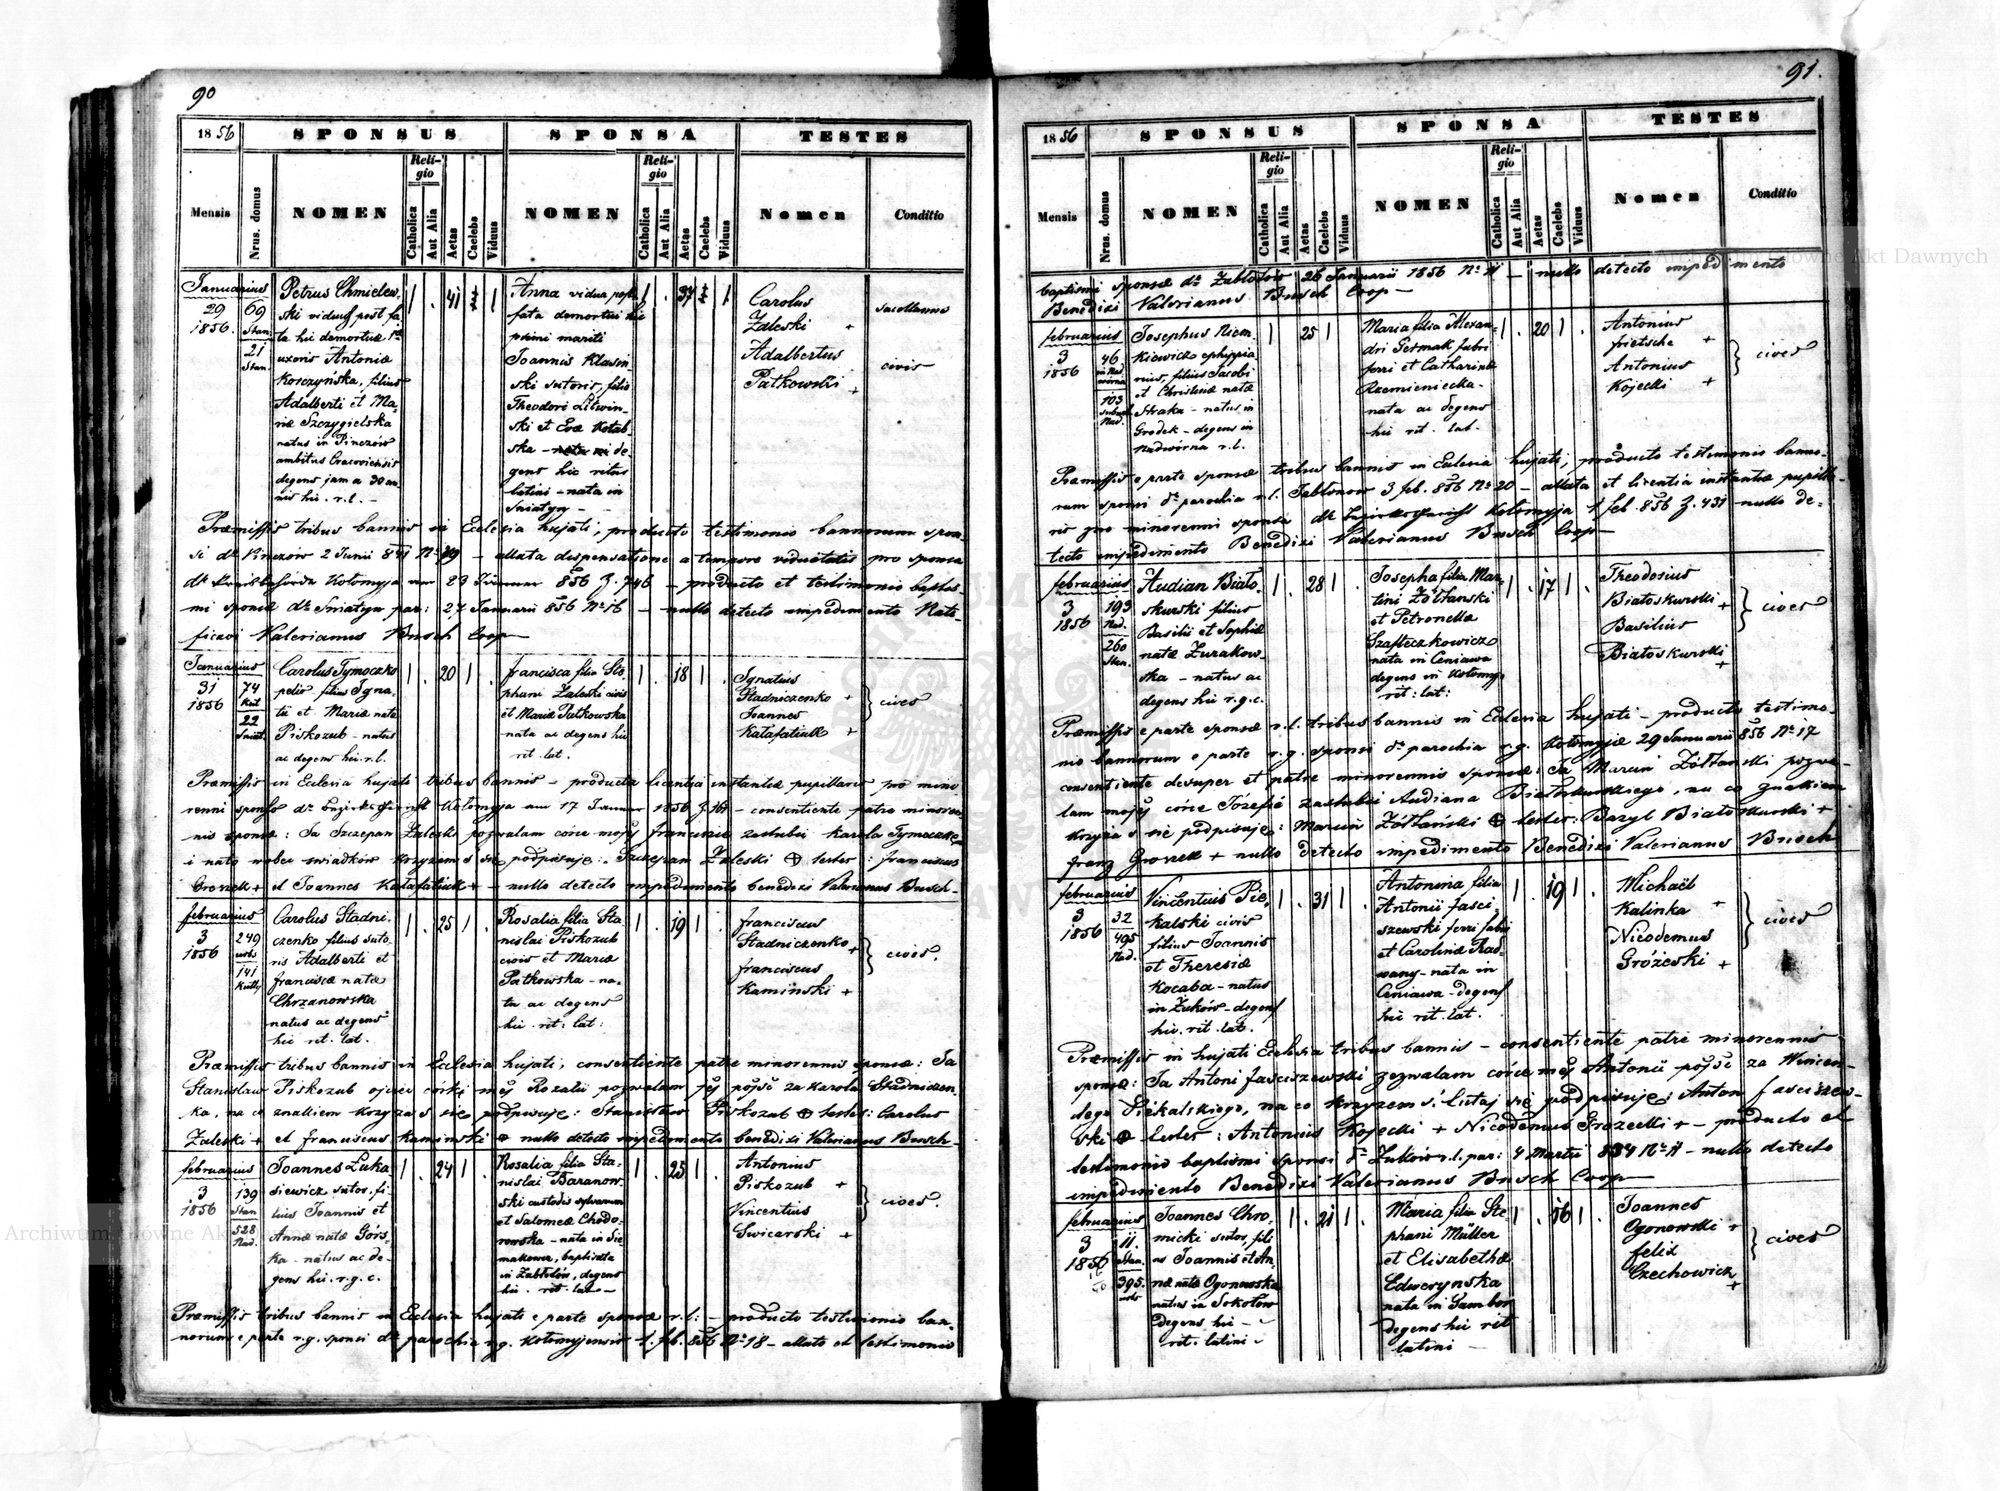 90
1856
SPONSUS
SPONSA
TESTES
Mensis
Nrus. domus
NOMEN
Religio
Catholica
Aut Alia
Aetas
Caelebs
Viduus
NOMEN
Religio
Catholica
Aut Alia
Aetas
Caelebs
Viduus
Nomen
Conditio
Januarius
29
1856.
69
Stan.
21
Stan.
Petrus Chmielew-
ski viduus post fa-
ta hic demortuæ
uxoris Antoniæ
Korczyńska, filius
Adalberti et Ma-
riæ Szczygielska
natus in Pinczów
ambitus Cracoviensis
degens jam a 30 an-
nis hic. r.l. -
41
Anna vidua post
fata demortui hic
primi mariti
Joannis Klasin-
ski sutoris, filia
Theodori Litwin-
ski et Evæ
ska - de-
gens hic ritus
latini - nata in
Sniatyn -
37
Carolus
Zaleski +
Adalbertus
Patkowski +
civis
Præmissis tribus bannis in Eclesia hujati, producto testimonio bannorum spon-
si dto Pinczów 2 Junii 841 No 19 - allata dispensatione a tempore viduitatis pro sponsa
Kołomyja 23 Januar 856 Z. 746 - producto et testimonio baptis-
mi sponsæ dto Sniatyn par: 27 Januarii 856 No 16 - nullo detecto impedimento Rati-
ficavi Valerianus Busch Coop
Januarius
31
1856
74
Kut
22
Sniat.
Carolus Tymoczko
pelio filius Igna-
tii et Mariæ nata
Piskozub - natus
ac degens hic r.l.
20
Francisca filia Ste-
phani Zaleski civis
et Mariæ Patkowska
nata ac degens hic
rit. lat.
18
Ignatius
Stadniczenko +
Joannes
Katafatiuk +
cives
Præmissis in Eclesia hujati tribus bannis - producta licentia instantiæ pupillaris pro mino-
renni sponso dto Kołomyja am 17 Januar 1856 Z. 161 - consentiente patre minoren-
nis sponsæ: Ja Szczepan Zaleski pozwalam córce mojéj Francisce zaslubić Karola Tymoczko
i nato wobec swiadków krzyzem s się podpisuje: Szczepan Zaleski + testes: Franciscus
Groszek + et Joannes Katafatiuk + - nullo detecto impedimento benedixi Valerianus Busch -
Februarius
3
1856
249
urb
141
Kutty
Carolus Stadni-
czenko filius suto-
ris Adalberti et
Franciscæ natæ
Chrzanowska
natus ac degens
hic rit. lat.
25
Rosalia filia Sta-
nislai Piskozub
civis et Mariæ
Patkowska - na-
ta ac degens
hic. rit: lat:
19
Franciscus
Stadniczenko +
Franciscus
Kaminski +
cives.
Præmissis tribus bannis in Eclesia hujati, consentiente patre minorennis sponsæ: Ja
Stanislaw Piskozub ojciec córki méj Rozalii pozwalam jéj pójść za Karola Stadniczen-
ka, na co znakiem krzyza s się podpisuję: Stanislaw Piskozub + testes: Carolus
Zaleski + et Franciscus Kaminski + nullo detecto impedimento benedixi Valerianus Busch -
Februarius
3
1856
139
Stan
528
Nad.
Joannes Luka-
siewicz sutor, fi-
lius Joannis et
Annæ natæ Górs-
ka - natus ac de-
gens hic. r.g.c.
24
Rosalia filia Sta-
nislai Baranow-
ski custodis sylvarum
et Salomeæ Chodo-
rowska - nata in Sie-
makowce, baptizata
in Zabłotów, degens
hic. rit. lat -
25
Antonius
Piskozub +
Vincentius
Swicarski +
cives.
Præmissis tribus bannis in Eclesia hujati e parte sponsæ r.l: - producto testimonio ban-
norum e parte r.g. sponsi dto parochia r.g. Kołomyjensis 1. feb. 856 No 18 - allato et testimonio
91.
1856
SPONSUS
SPONSA
TESTES
Mensis
Nrus. domus
NOMEN
Religio
Catholica
Aut Alia
Aetas
Caelebs
Viduus
NOMEN
Religio
Catholica
Aut Alia
Aetas
Caelebs
Viduus
Nomen
Conditio
baptismi sponsæ dto Zabłotów 26 Januarii 1856 No 11 - nullo detecto impedimento
Benedixi Valerianus Busch Coop -
Februarius
3
1856
46
in Nad-
wórna
103
suburb.
Nad.
Josephus Niem-
kiewicz ephippia-
rius, filius Jacobi
et Christinæ natæ
Straka - natus in
Grodek - degens in
Nadwórna r.l.
25
Maria filia Alexan-
dri Permak fabri
ferri et Catharinæ
Rzemieniecka -
nata ac degens
hic rit. lat.
20
Antonius
Frietsche +
Antonius
Kojecki +
cives
Præmissis e parte sponsæ tribus bannis in Eclesia hujati, producto testimonio banno-
rum sponsi dto parochia r.l. Jabłonow 3 feb. 856 No 20 - allata et licentia instantiæ pupilla-
ris pro minorenni sponsa dto Kołomyja 1 feb. 856 Z. 431 - nullo de-
tecto impedimento Benedixi Valerianus Busch Coop -
Februarius
3
1856
193
Nad.
260
Stan.
Audian Biało-
skurski filius
Basilii et Sophiæ
natæ Zurakow-
ska - natus ac
degens hic r.g.c.
28
Josepha filia Mar-
tini Żółtanski
et Petronellæ
Szafleczkowicz
nata in Ceniawa
degens in Kołomyj
rit: lat:
17
Theodosius
Białoskurski +
Basilius
Białoskurski +
cives
Præmissis e parte sponsæ r.l. tribus bannis in Eclesia hujati - producto testimo-
nio bannorum e parte r.g. sponsi dto parochia r.g. Kołomyjæ 29 Januarii 856 No 17
consentiente desuper et patre minorennis sponsæ: Ja Marcin Żółtanski pozwa-
lam mojéj córce Józefie zaslubić Audiana Białoskurskiego, na co znakiem
krzyza s się podpisuję: Marcin Żółtański + testes: Bazyl Białoskurski +
Franz Groszek + nullo detecto impedimento Benedixi Valerianus Busch
Februarius
3
1856
32
495
Nad.
Vincentius Pie-
kalski civis
filius Joannis
et Theresiæ
Kocaba - natus
in Żuków - degens
hic. rit. lat.
31
Antonina filia
Antonii Fasci-
szewski ferri fabri
et Carolinæ Rad-
wany - nata in
Ceniawa - degens
hic rit. lat.
19
Michaël
Kalinka +
Nicodemus
Gróżeski +
cives
Præmissis in hujati Eclesia tribus bannis - consentiente patre minorennis
sponsæ: Ja Antoni Fasciszewski zezwalam córce méj Antonii pójść za Wincen-
tego Piekalskiego, na co krzyzem s. tutaj się podpisuję: Anton Fasciszew-
ski + testes: Antonius Kojecki + Nicodemus Grozecki + - producto et
testimonio baptismi sponsi dto Zuków r.l. par: 4 Martii 834 No 11 - nullo detecto
impedimento Benedixi Valerianus Busch Coop
Februarius
3
1856
11.
Stan.
395.
urb
Joannes Chro-
micki sutor, fili-
us Joannis et An-
næ natæ Ogonowska
natus in Sokołow
degens hic -
rit. latini -
21
Maria filia Ste-
phani Müller
et Elisabethæ
Edwerynska
nata in Sambor
degens hic rit
latini -
16
Joannes
Ogonowski +
Felix
Czechowicz +
cives
Archiwum Główne Akt Dawnych